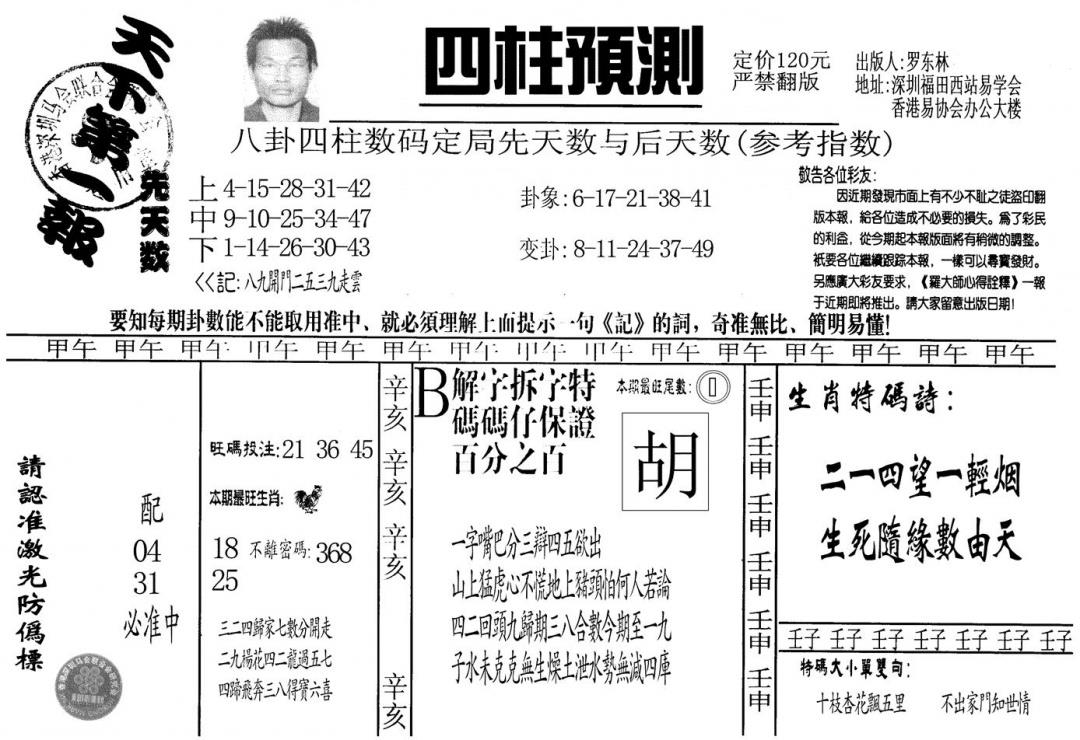 天下第一報
四柱預測
定价120元
严禁翻版
出版人:罗东林
地址:深圳福田西站易学会
香港易协会办公大楼
八卦四柱数码定局先天数与后天数(参考指数)
先天数
上 4-15-28-31-42
中 9-10-25-34-47
下 1-14-26-30-43
<<記:八九開門二五三九走雲
卦象:6-17-21-38-41
变卦:8-11-24-37-49
敬告各位彩友:
因近期發現市面上有不少不耻之徒盜印翻
版本報,給各位造成不必要的損失。爲了彩民
的利益,從今期起本報版面將有稍微的調整。
衹要各位繼續跟踪本報,一樣可以尋寶發財。
另應廣大彩友要求,《羅大師心得詮釋》一報
于近期即將推出。請大家留意出版日期!
要知每期卦數能不能取用准中、就必須理解上面提示一句《記》的詞,奇准無比、簡明易懂!
甲午 甲午 甲午 甲午 甲午 甲午 甲午 甲午 甲午 甲午 甲午 甲午 甲午 甲午 甲午
請認准激光防僞標
配
04
31
必准中
旺碼投注:21 36 45
本期最旺生肖:
18 不離密碼:368
25
三二四歸家七數分開走
二九揚花四二龍過五七
四蹄飛奔三八得寶六喜
辛亥 辛亥 辛亥 辛亥
B 解字拆字特
碼碼仔保證
百分之百
本期最旺尾數:0
胡
一字嘴巴分三辯四五欲出
山上猛虎心不慌地上豬頭怕何人若論
四二回頭九歸期三八合數今期至一九
子水未克克無生燥土泄水勢無減四庫
壬申 壬申 壬申 壬申 壬申 壬申
生肖特碼詩:
二一四望一輕烟
生死隨緣數由天
壬子 壬子 壬子 壬子 壬子 壬子 壬子
特碼大小單雙句:
十枝杏花飄五里 不出家門知世情